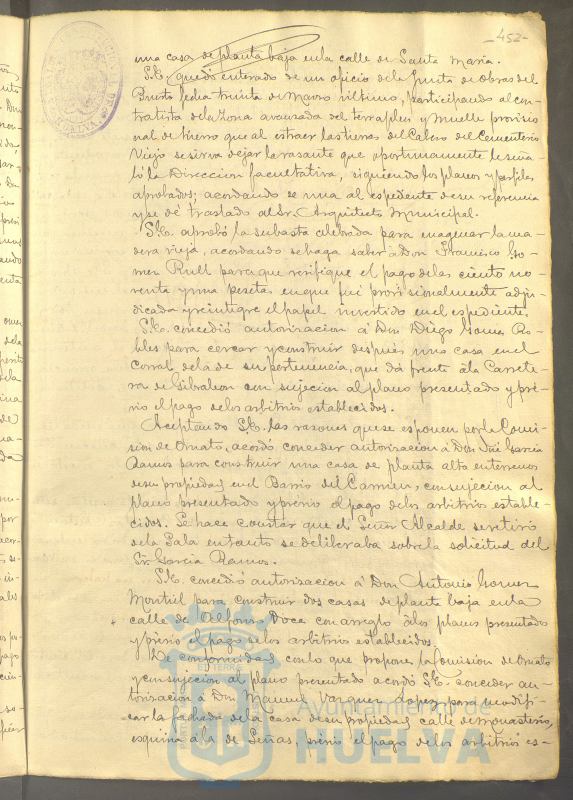 -452-
una casa de planta baja en la calle de Santa María.
S.E. quedó enterado de un oficio de la Junta de Obras del
Puerto fecha treinta de Marzo último, participando al con-
tratista de la zona avanzada del terraplén y muelle provisio
nal de hierro que al estraer las tierras del Cabezo del Cementerio
Viejo se sirva dejar la rasante que oportunamente le seña-
ló la Dirección facultativa, siguiendo los planos y perfiles
aprobados; acordando se una al espediente de su referencia
y se dé traslado al Sr. Arquitecto Municipal.
S.E. aprobó la subasta celebrada para enagenar la ma-
dera vieja, acordando se haga saber á Don Francisco Go-
mez Rull para que verifique el pago de las ciento no-
venta y una pesetas en que fué provisionalmente adju-
dicada y reintegre el papel invertido en el espediente.
S.E. concedió autorizacion á Don Diego Gomez Ro-
bles para cercar y construir despues una casa en el
corral de la de su pertenencia, que dá frente á la Carrete-
ra de Gibraleon con sujecion al plano presentado y pré-
vio el pago de los arbitrios establecidos.
Aceptando S.E. las razones que se esponen por la Comi-
sion de Ornato, acordó conceder autorizacion á Don José García
Ramos para construir una casa de planta alta en terrenos
de su propiedad en el Barrio del Carmen, con sujecion al
plano presentado y prévio el pago de los arbitrios estable-
cidos. Se hace constar que el Señor Alcalde se retiró
de la Sala en tanto se deliberaba sobre la solicitud del
Sr. García Ramos.
S.E. concedió autorizacion á Don Antonio Gomez
Montiel para construir dos casas de planta baja en la
calle de Alfonso Doce con arreglo á los planos presentado
y prévio el pago de los arbitrios establecidos.
De conformidad con lo que propone la Comision de Ornato
y con sujecion al plano presentado acordó S.E. conceder au-
torizacion á Don Manuel Vazquez Lopez para modifi-
car la fachada de la casa de su propiedad calle de Monasterio,
esquina á la de Señas, prévio el pago de los arbitrios es-
Ayuntamiento de
HUELVA